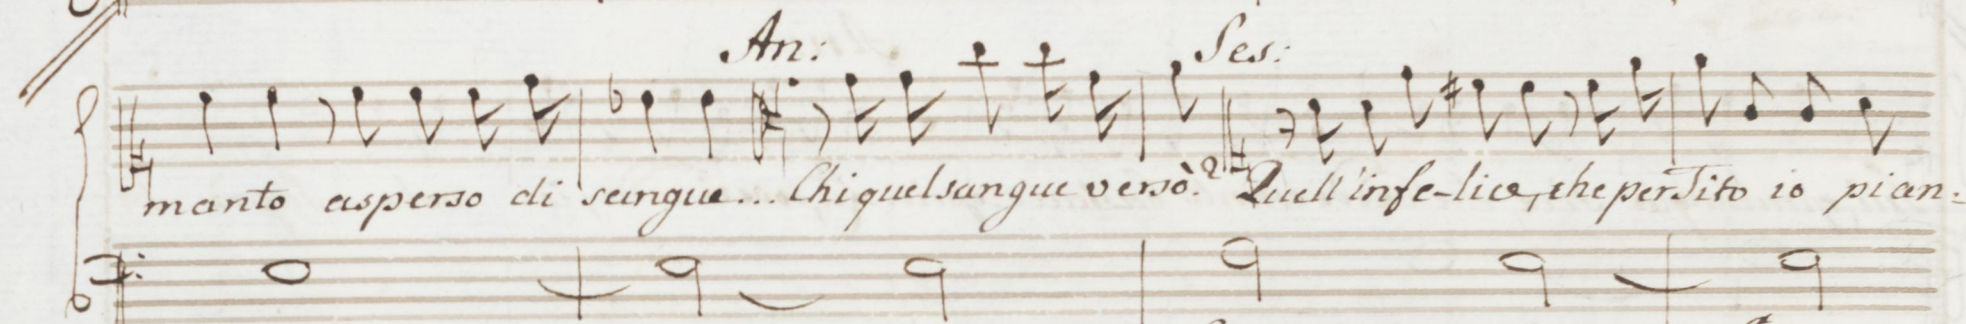 An: Ses:
manto asperso di sangue... Chi quel sangue versò? Quell'infe-lice, che per Tito io pian-